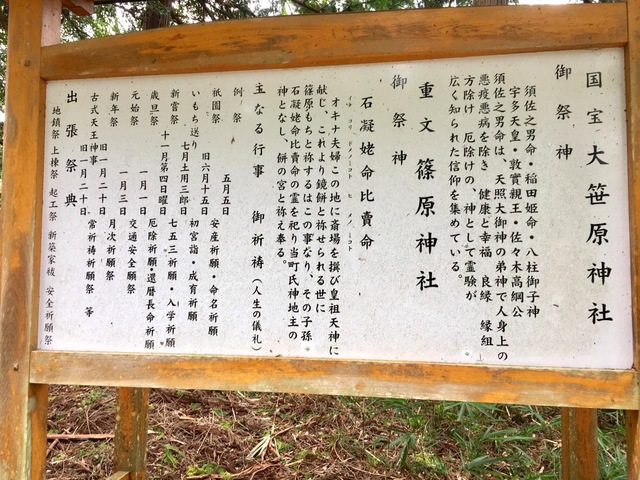 国宝 大笹原神社
御祭神
須佐之男命・稲田姫命・八柱御子神
宇多天皇・敦實親王・佐々木高綱公
須佐之男命は、天照大御神の弟神で人身上の
悪疫悪病を除き 健康と幸福 良縁 縁組
方除け 厄除けの、神として霊験が
広く知られた信仰を集めている。
重文 篠原神社
御祭神
石凝姥命比賣命
イシ コリ ドメノ ミコト ヒ メノ ミコト
オキナ夫婦この地に斎場を撰び皇祖天神に
献じ、これより鏡餅と称せられる世に
篠原もちと称するはこの事なり、その子孫
石凝姥命比賣命の霊を祀り当町氏神地主の
神となし、餅の宮と称え奉る。
主なる行事 御祈祷(人生の儀礼)
例祭 五月五日 安産祈願・命名祈願
祇園祭 旧六月十五日 初宮詣・成育祈願
いもち送り 七月土用三郎日 七五三祈願・入学祈願
新嘗祭 十一月第四日曜日 厄除祈願・還暦長命祈願
歳旦祭 一月一日 交通安全願祭
元始祭 一月三日 月次祈願祭
新年祭 旧一月二十日 常祈祷祈願祭 等
古式天王神事 旧一月二十日
出張祭典
地鎮祭 上棟祭 起工祭 新築家祓 安全祈願祭